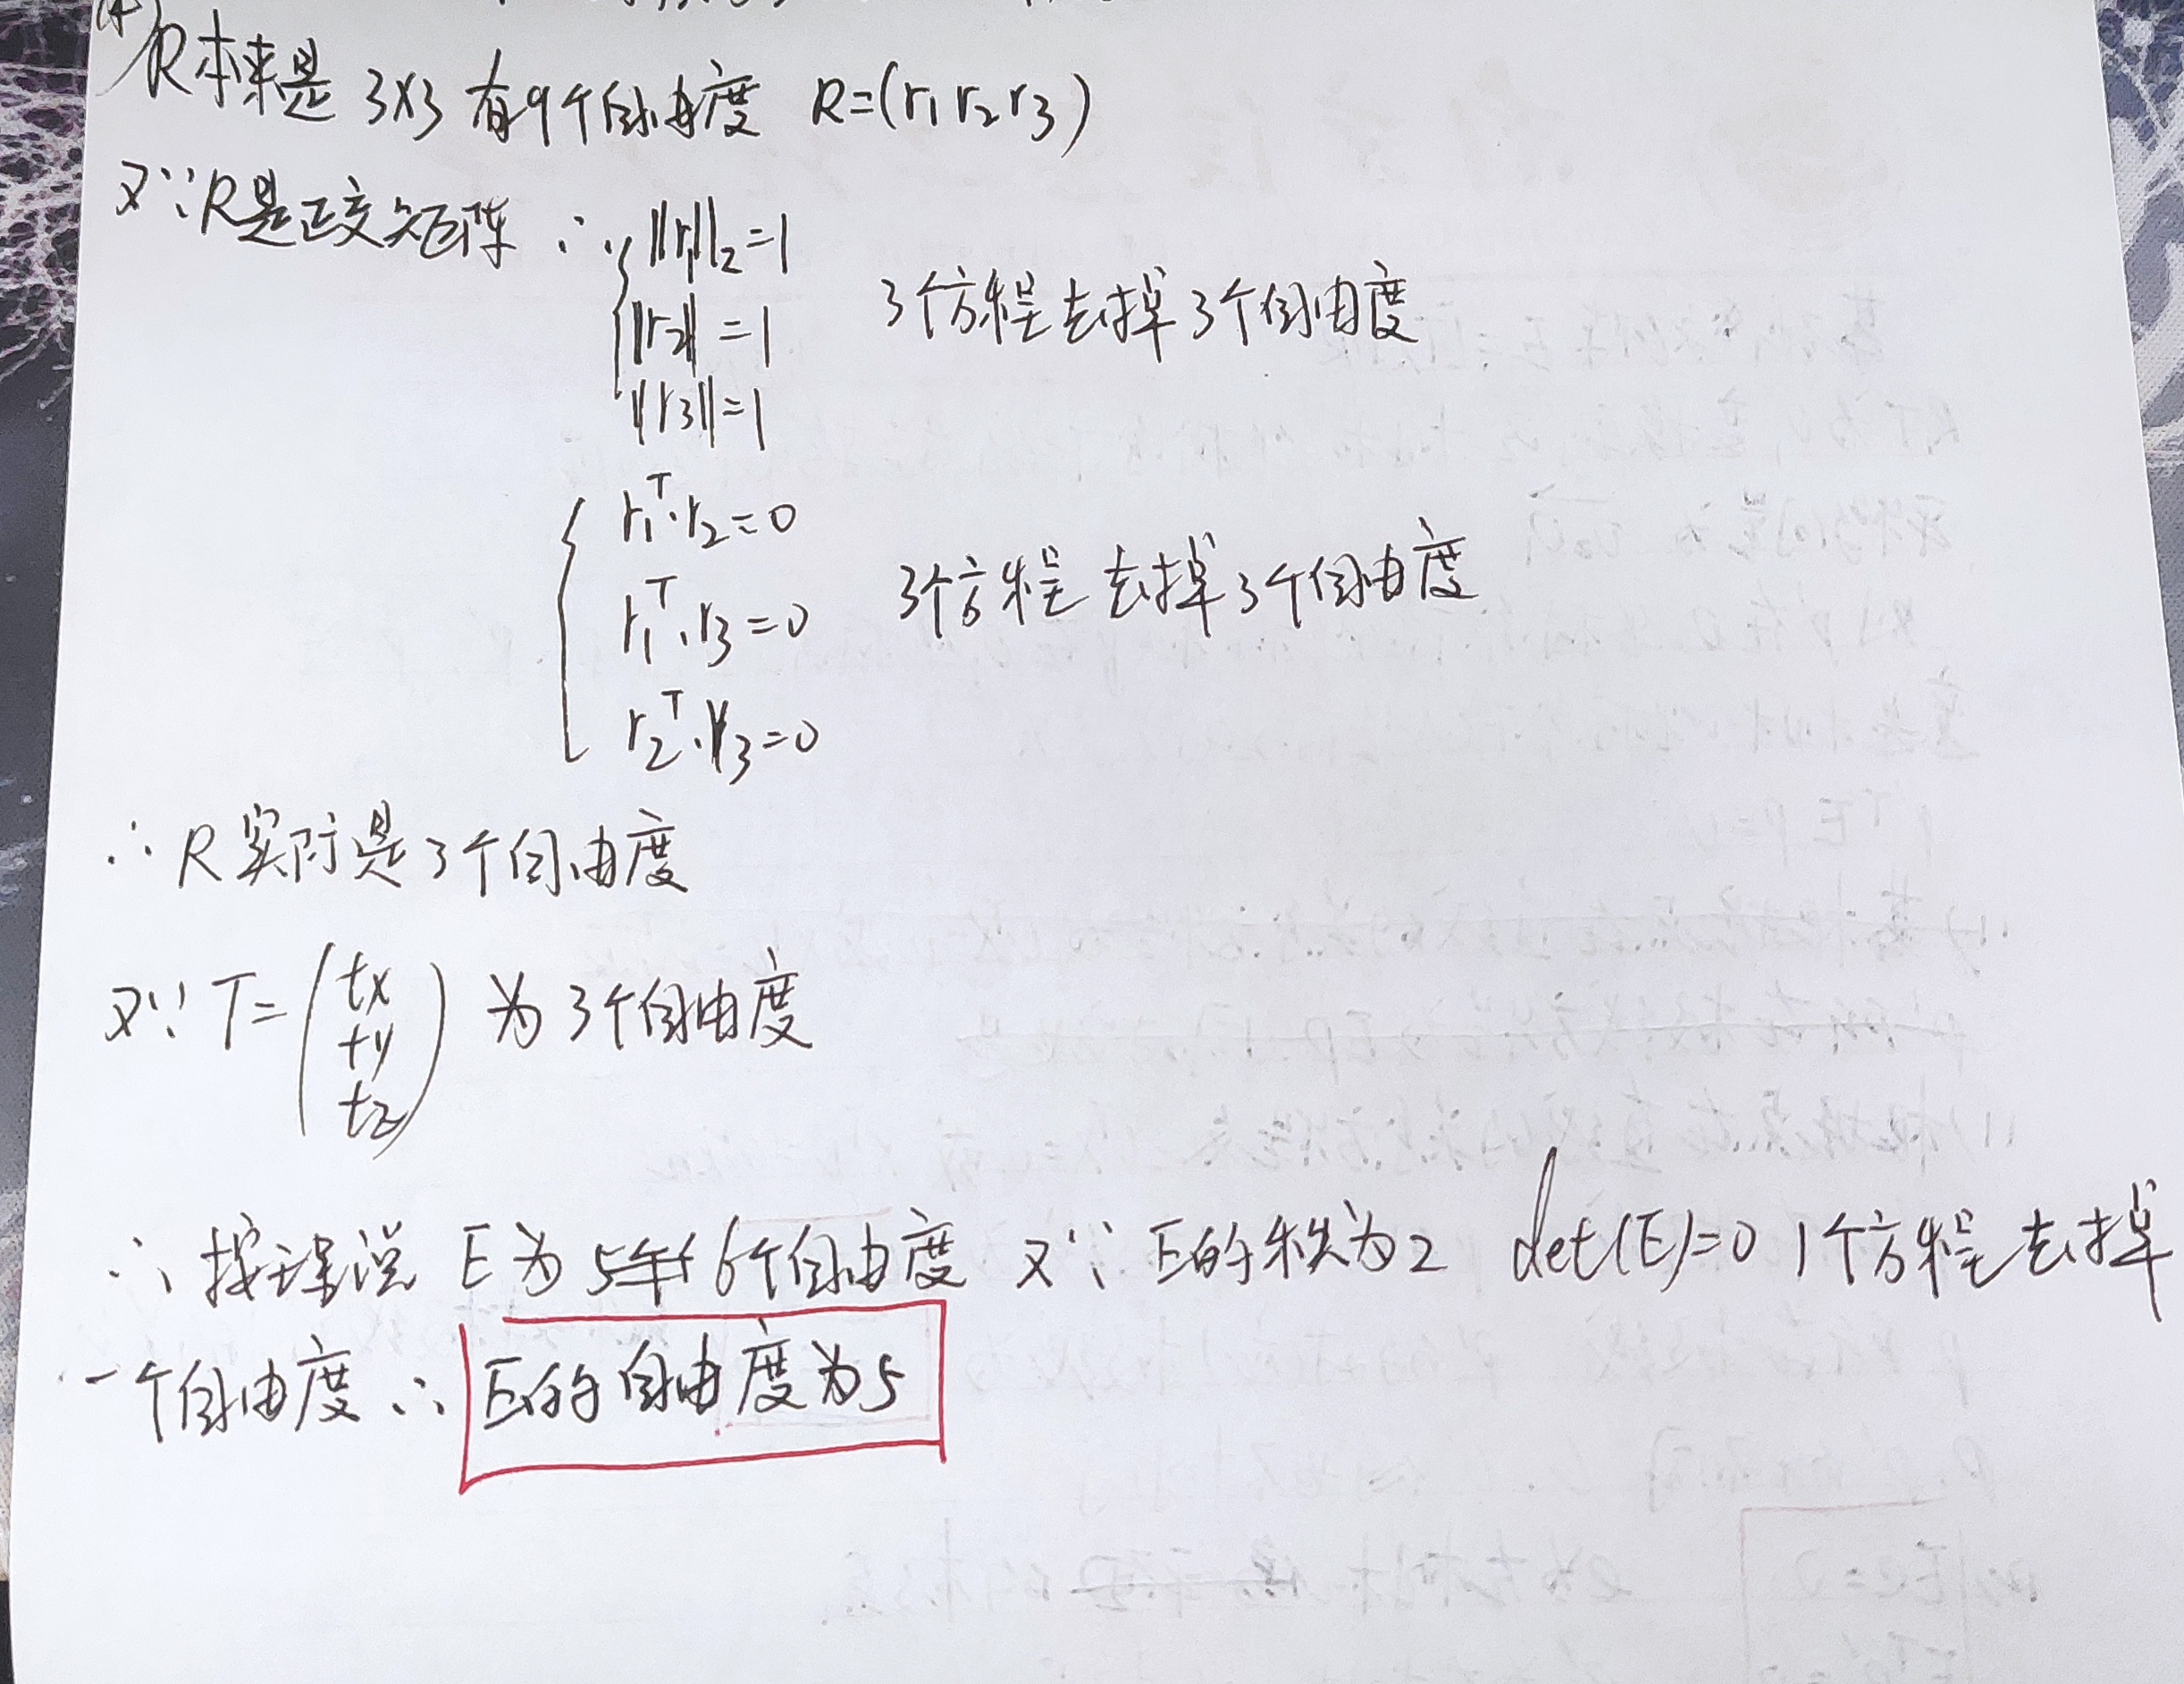 (4)
R本来是 3×3 有9个自由度 R=(r1 r2 r3)
又∵R是正交矩阵 ∴ ||r1||2=1
||r2||=1 3个方程去掉3个自由度
||r3||=1
r1^T·r2=0
r1^T·r3=0 3个方程去掉3个自由度
r2^T·r3=0
∴R实际是3个自由度
又∵ T=(tx ty tz) 为3个自由度
∴ 按理说 E为 6个自由度 又∵ E的秩为2 det(E)=0 1个方程去掉
一个自由度 ∴ E的自由度为5